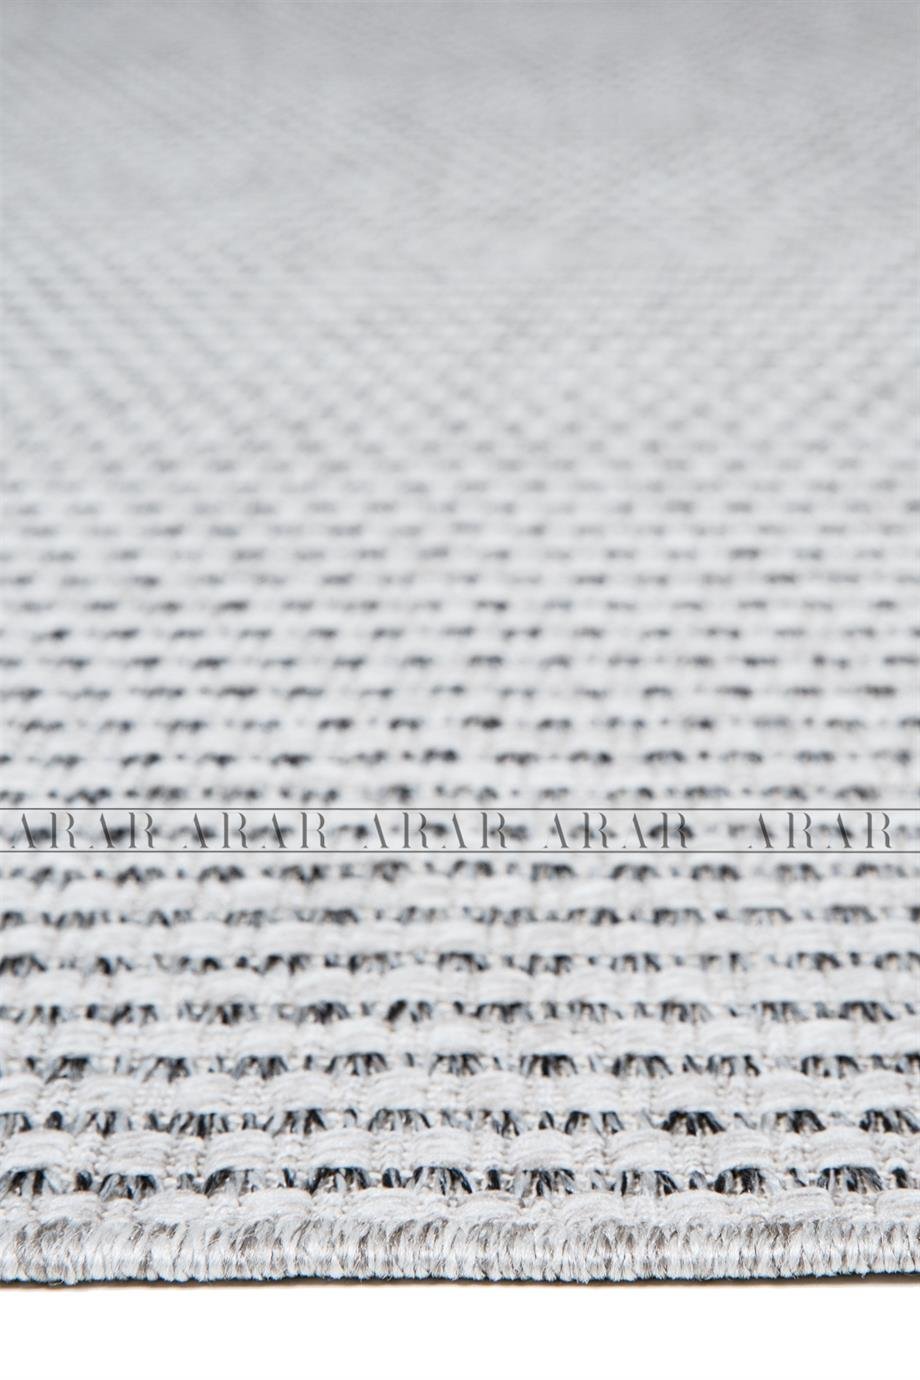 ARAR ARAR ARAR ARAR ARAR